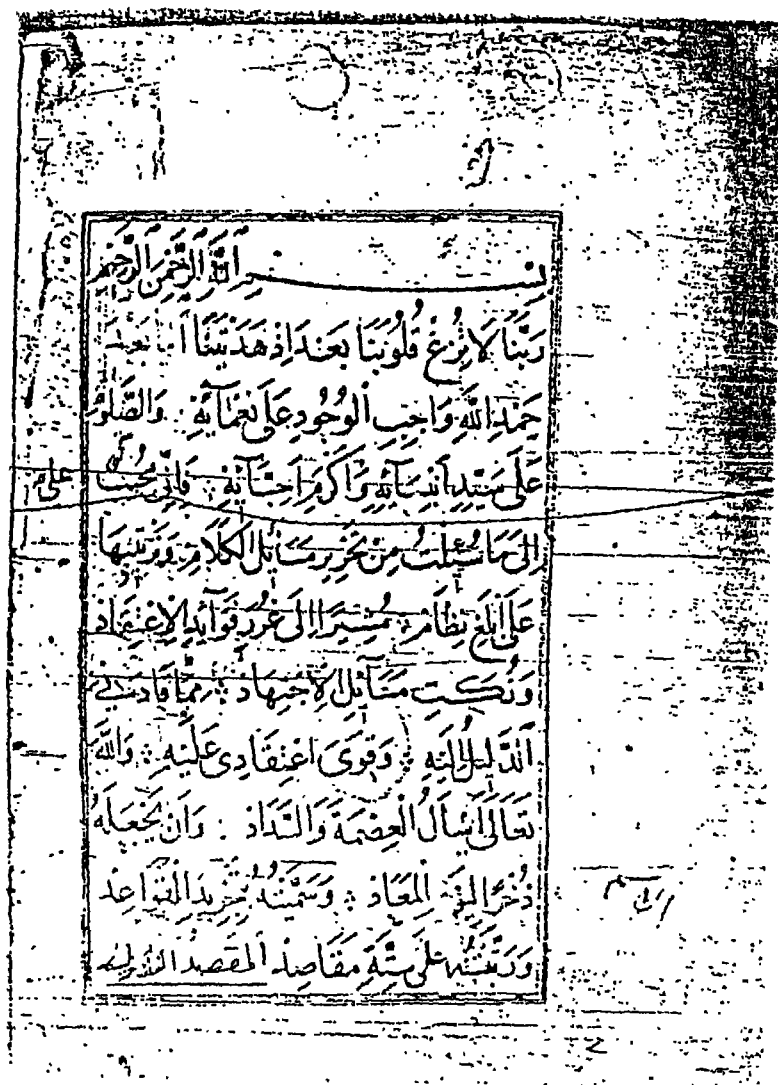 بسم الله الرحمن الرحيم
رَبَّنَا لَا تُزِغْ قُلُوبَنَا بَعْدَ اِذْ هَدَيْتَنَا اَمَّا بَعْدَ
حَمْدِ اللّٰهِ وَاجِبِ الْوُجُودِ عَلَى نَعْمَآئِهِ وَالصَّلٰوةِ
عَلَى سَيِّدِ اَنْبِيَآئِهِ وَاَكْرَمِ اَحِبَّآئِهِ فَاِنِّى مُجِيبٌ
اِلَى مَا سُئِلْتُ مِنْ تَحْرِيرِ مَسَآئِلِ الْكَلَامِ وَتَرْتِيبِهَا
عَلَى اَبْلَغِ نِظَامٍ مُشِيرًا اِلَى غُرَرِ فَوَآئِدِ الْاِعْتِقَادِ
وَنُكَتِ مَسَآئِلِ الْاِجْتِهَادِ مِمَّا قَادَنِى
الدَّلِيلُ اِلَيْهِ وَقَوِىَ اعْتِقَادِى عَلَيْهِ وَاللّٰهَ
تَعَالَى اَسْأَلُ الْعِصْمَةَ وَالسَّدَادَ وَاَنْ يَجْعَلَهُ
ذُخْرًا لِيَوْمِ الْمَعَادِ وَسَمَّيْتُهُ بِتَجْرِيدِ الْقَوَاعِدِ
وَرَتَّبْتُهُ عَلَى سِتَّةِ مَقَاصِدَ الْمَقْصِدُ